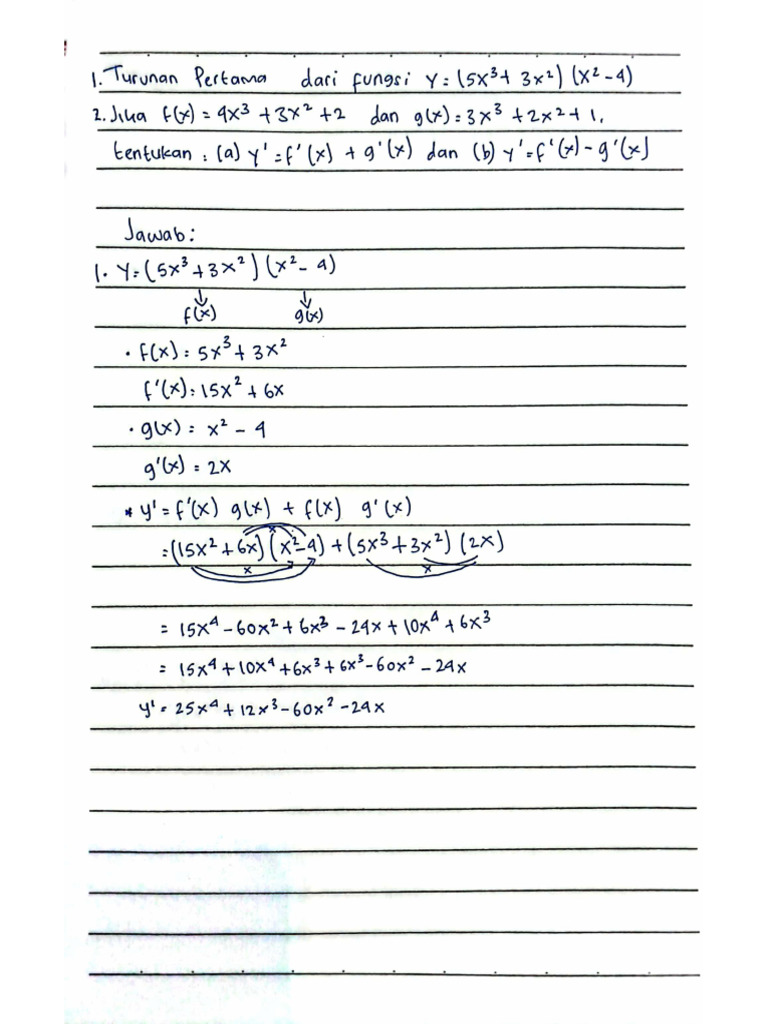 1. Turunan Pertama dari fungsi Y = (5x³ + 3x²) (x² - 4)
2. Jika f(x) = 4x³ + 3x² + 2 dan g(x) = 3x³ + 2x² + 1,
tentukan : (a) y' = f'(x) + g'(x) dan (b) y' = f'(x) - g'(x)
Jawab :
1. Y = (5x³ + 3x²) (x² - 4)
↓ ↓
f(x) g(x)
• f(x) = 5x³ + 3x²
f'(x) = 15x² + 6x
• g(x) = x² - 4
g'(x) = 2x
* y' = f'(x) g(x) + f(x) g'(x)
x
= (15x² + 6x) (x² - 4) + (5x³ + 3x²) (2x)
x x
= 15x⁴ - 60x² + 6x³ - 24x + 10x⁴ + 6x³
= 15x⁴ + 10x⁴ + 6x³ + 6x³ - 60x² - 24x
y' = 25x⁴ + 12x³ - 60x² - 24x